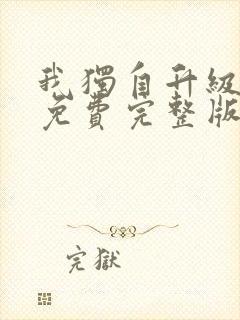 我獨自升級
免費完整版
完獄